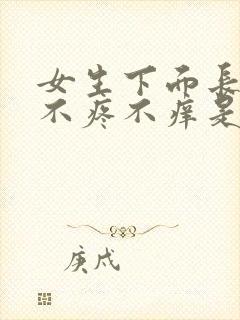 女生下而長
不疼不痒是
庚戌